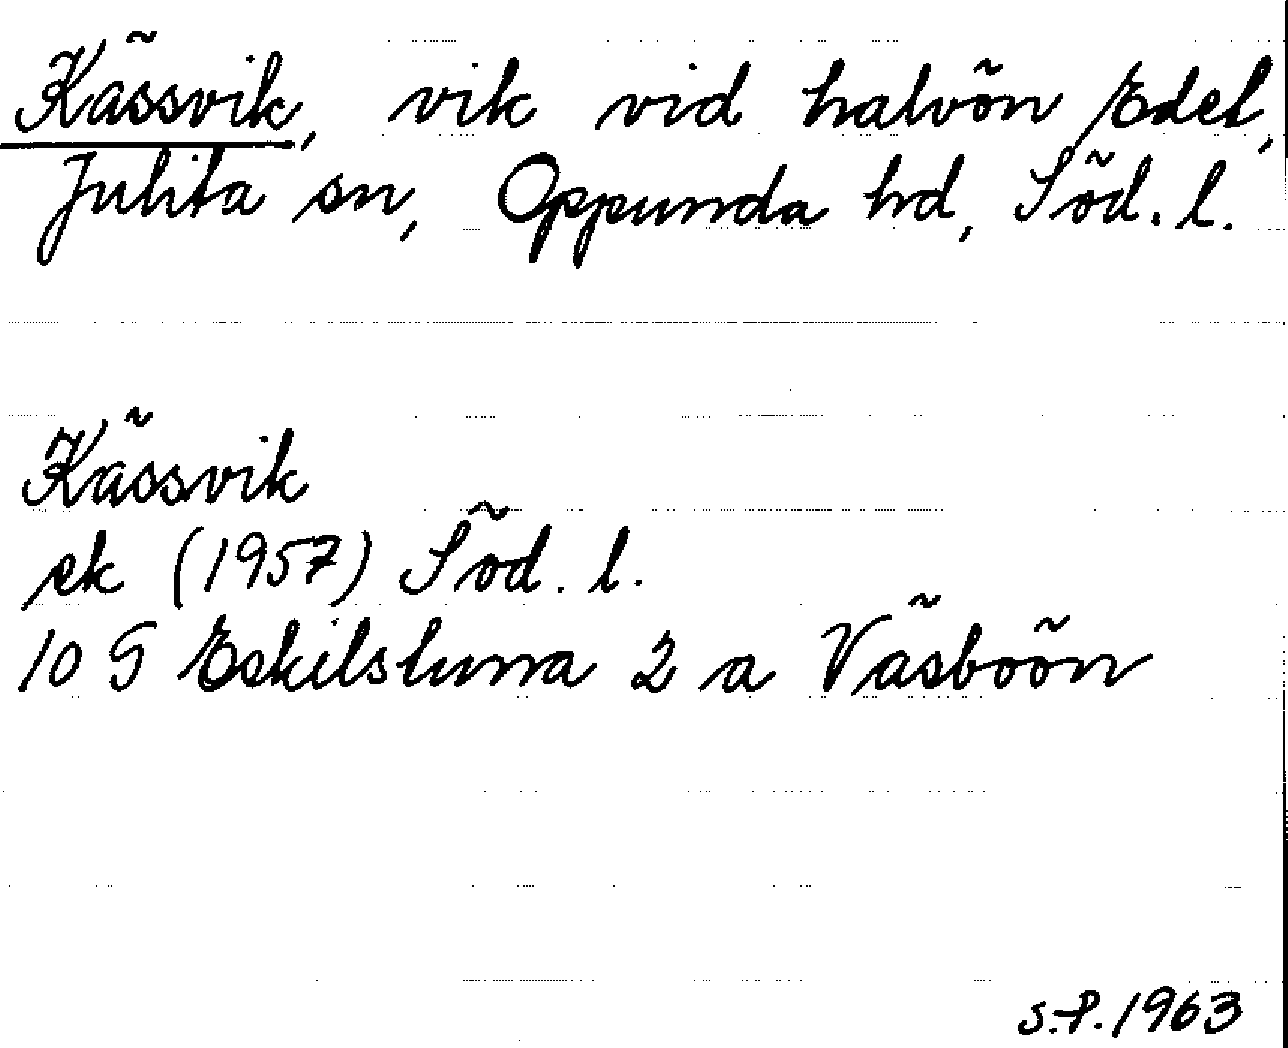 Kässvik, vik vid halvön Edet,
Julita sn, Oppunda hd, Söd. l.
Kässvik
ek (1957) Söd. l.
10 G Eskilstuna 2 a Väsboön
S.P. 1963